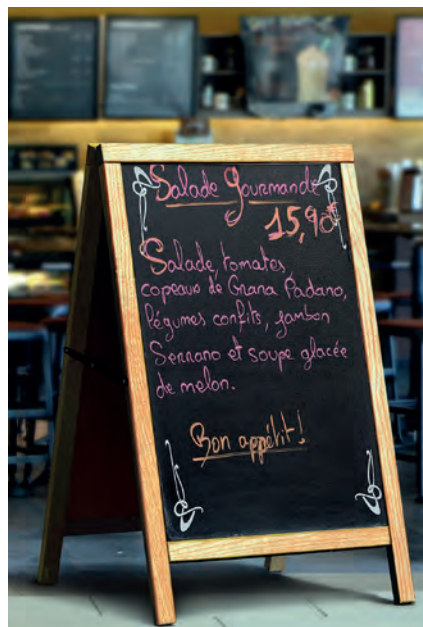 Salade gourmande
15,90€
Salade, tomates,
copeaux de Grana Padano,
légumes confits, jambon
Serrano et soupe glacée
de melon.
Bon appétit!